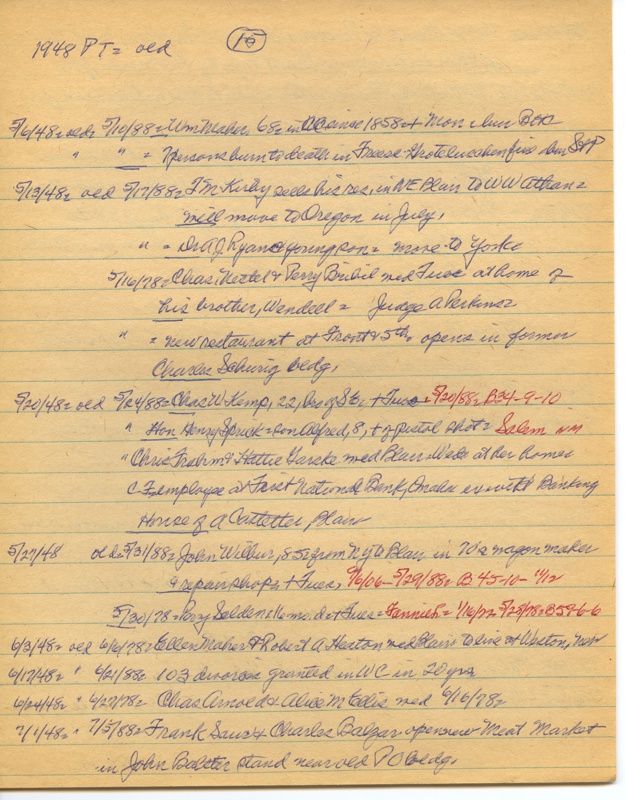 1948 PT= old 15
5/6/48= old= 5/10/88= Wm Maher, 68= in WC since 1858= + Mon = bur BC
" " = 7 persons burn to death in Freese Grotelueschen fire bur
5/13/48= old 5/17/88= F M Kirby sells his res, in NE Blair to W W
will move to Oregon in July,
" = Dr A J Ryan & young son = move to York=
5/16/78= Chas. & Perry med Tues at home of
his brother, Wendell = Judge A Perkins=
" = new restaurant at Front & 5th, opens in former
Charles Schurig bldg,
5/20/48= old 5/24/88= Chas W Kemp, 22, + Tues = 5/20/88= B34-9-10
" Hon Henry Sprick = son Alfred, 8, + of pistol shot = Salem
" Chris Frahm & Hattie med Blair Weds at her home=
C F employee at First National Bank, Omaha ex with Banking
House of A Castetter, Blair
5/27/48 old= 5/31/88= John Wilbur, 85= from NY to Blair in 70's wagon maker
& repair shop, + Tues, 9/6/06 - 5/29/88= B 45-10-11/12
5/30/78= Perry Selden= 16 mo. dt + Tues= Fannie= 1/16/77 5/28/78= B59-6-6
6/3/48= old 6/6/78= Ellen Maher & Robert A Heston med Blair to live at Weston,
6/17/48= " 6/21/88= 103 divorces granted in WC in 20 yrs
6/24/48= " 6/27/78= Chas Arnold & Alice M Ellis med 6/16/78=
7/1/48= " 7/5/88= Frank & Charles Balzar open new Meat Market
in John stand near old P O bldg,